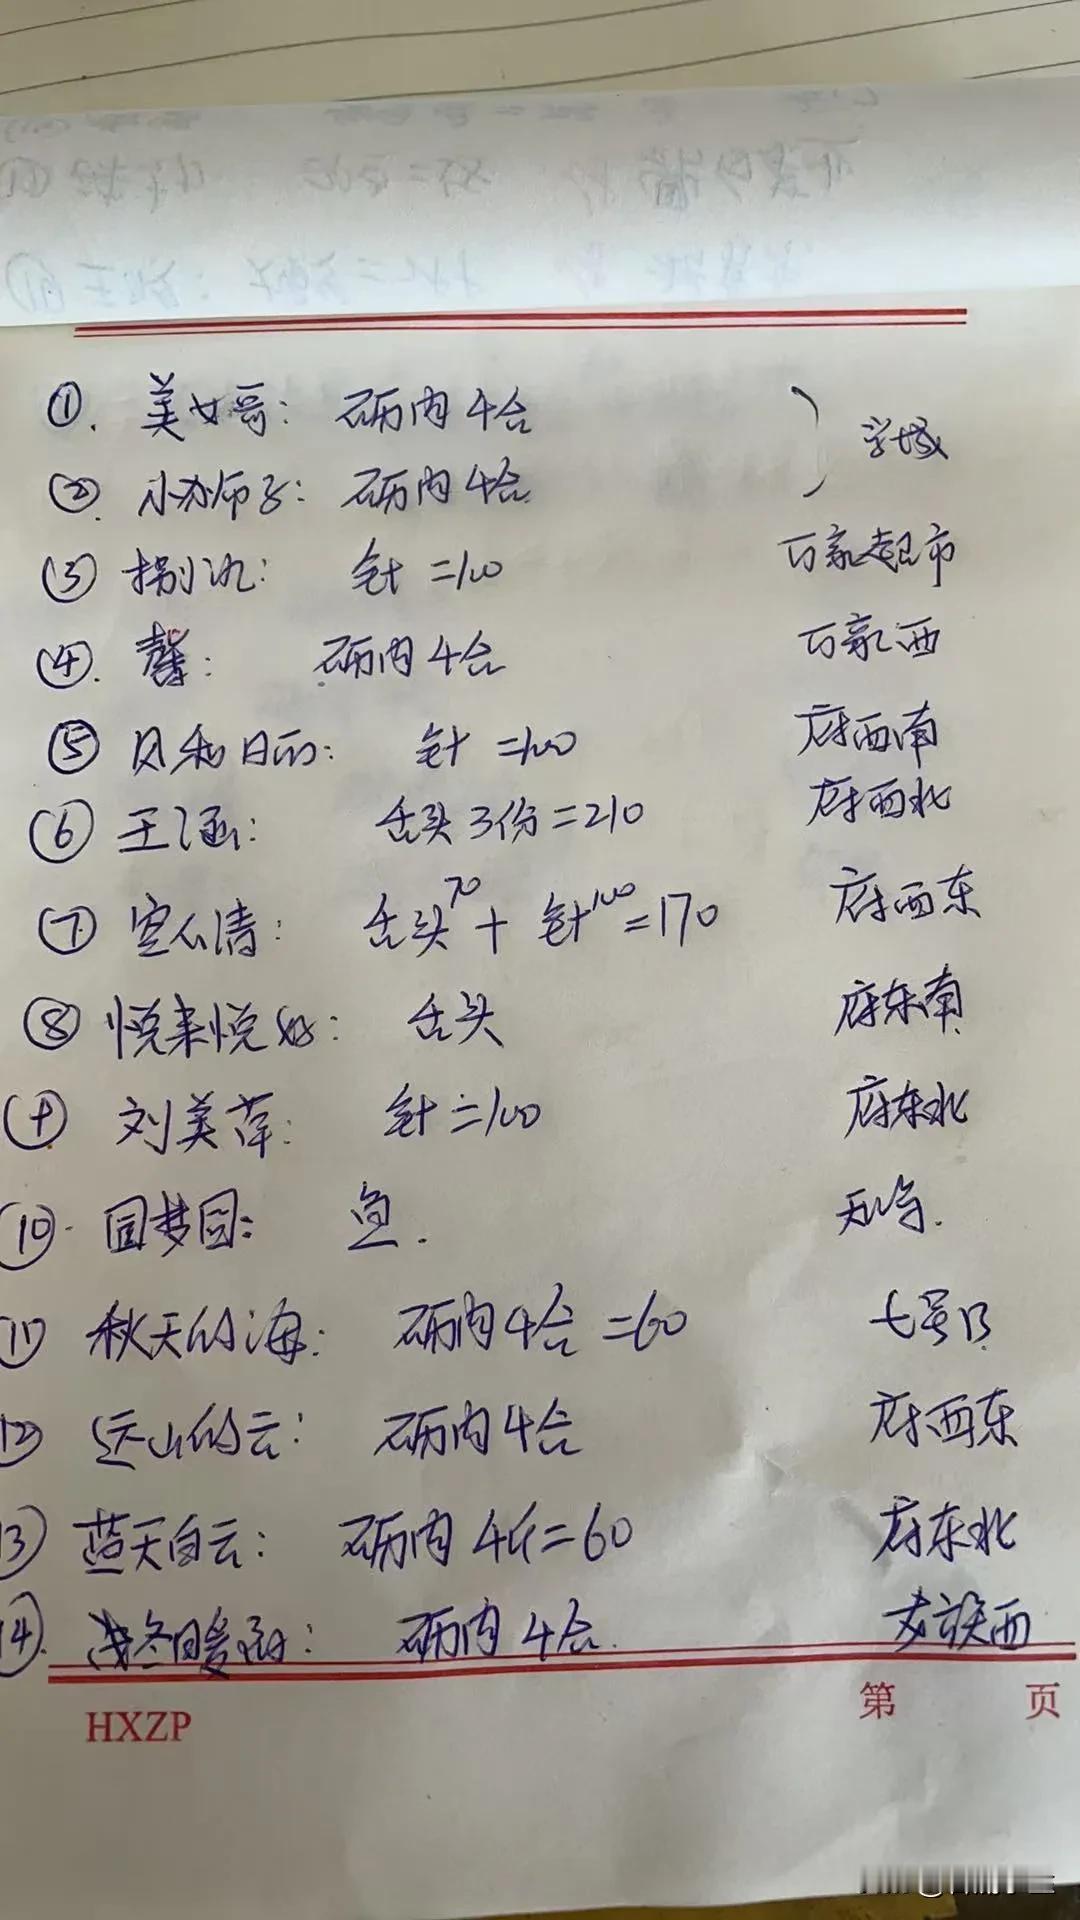 ①. 美女哥: 砺内4合
学城
②. 小办师子: 砺内4合
③ 捌: 针=100 万家超市
④. 馨: 砺内4合 万家西
⑤ 风和日丽: 针=100 府西南
⑥ 王涵: 舌头3份=210 府西北
⑦ 空人清: 舌头70+针100=170 府西东
⑧ 悦来悦好: 舌头 府东南
刘美萍: 针=100 府东北
⑩ 圆梦园: 鱼.
⑪ 秋天的海: 砺内4合=60 七号
⑫ 远山的云: 砺内4合 府西东
⑬ 蓝天白云: 砺内4斤=60 府东北
⑭. 冬日暖: 砺内4合. 西
HXZP
第 页